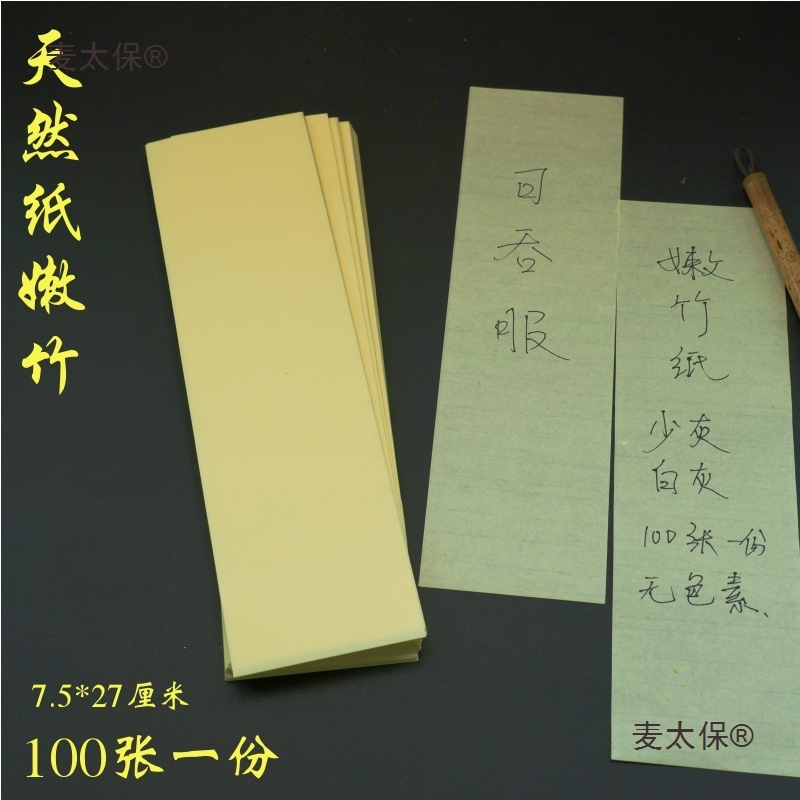 天然纸嫩竹
麦太保®
可吞服
嫩竹纸
少灰
白灰
100张一份
无色素、
7.5*27厘米
100张一份
麦太保®